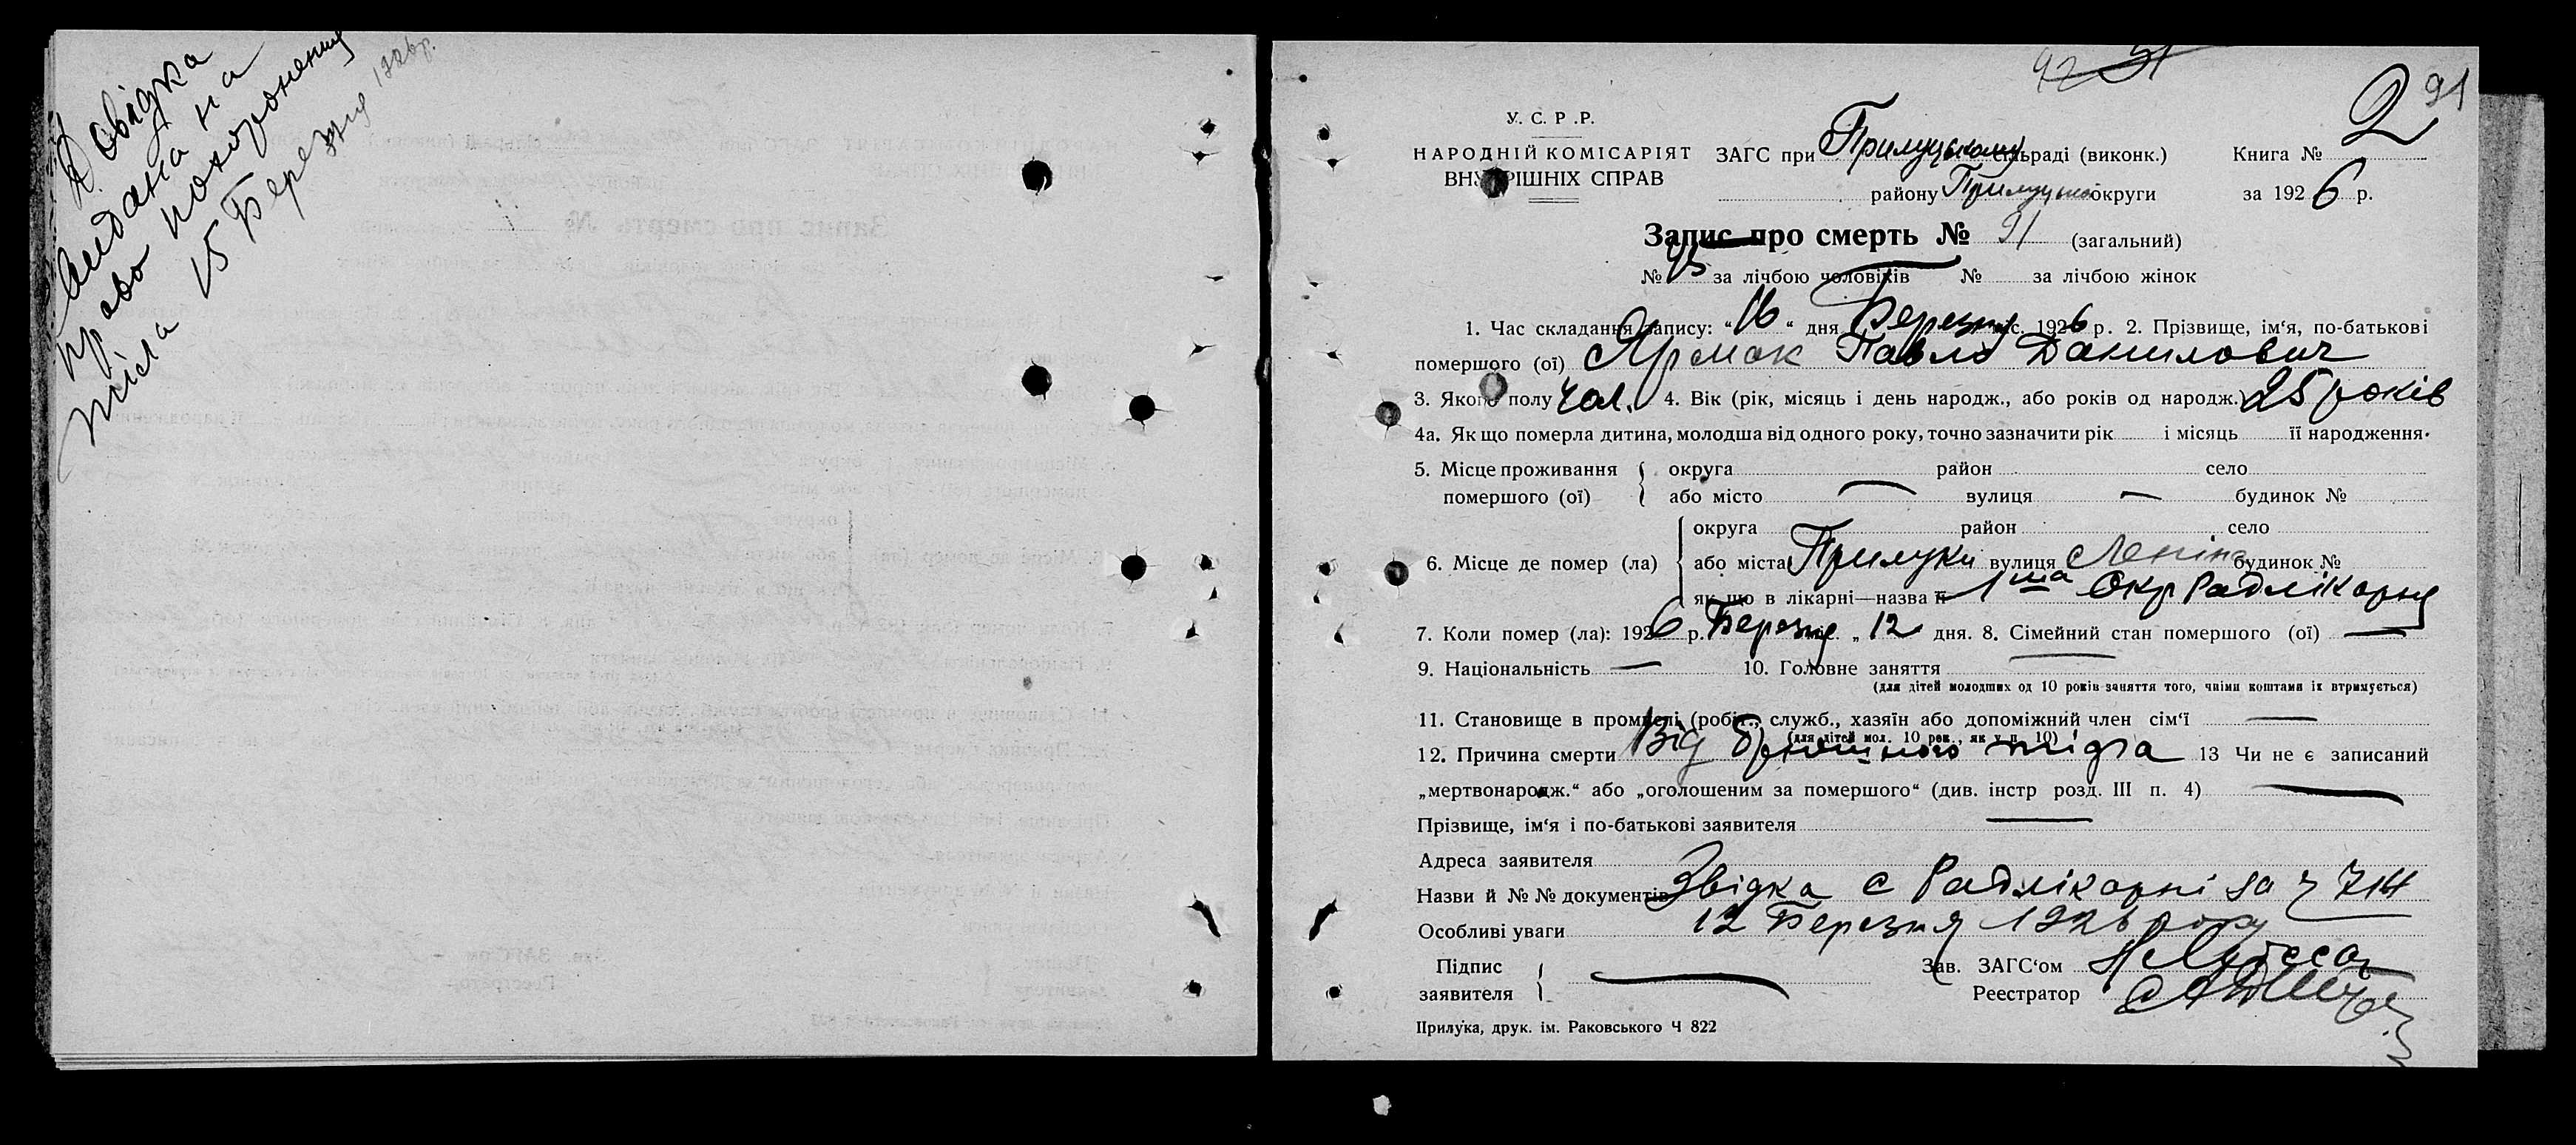 Довідка
видана на
право похоронення
тіла 15 Березня 1926р.
92 31
2 91
У. С. Р. Р.
НАРОДНІЙ КОМІСАРІЯТ
ВНУТРІШНІХ СПРАВ
ЗАГС при Прилуцькому сільраді (виконк.) Книга №
району Прилуцької округи за 1926 р.
Запис про смерть № 91 (загальний)
№ за лічбою чоловіків № за лічбою жінок
1. Час складання запису: “16“ дня Березня міс. 1926 р. 2. Прізвище, ім‘я, по-батькові
помершого (ої) Ярмак Павло Данилович
3. Якого полу чол. 4. Вік (рік, місяць і день народж., або років од народж.) 25 років
4а. Як що померла дитина, молодша від одного року, точно зазначити рік і місяць її народження.
5. Місце проживання помершого (ої) { округа район село
або місто — вулиця — будинок №
6. Місце де помер (ла) { округа район село
або міста Прилуки вулиця Леніна будинок №
як що в лікарні—назва її 1ша Окр Радлікарня
7. Коли помер (ла): 1926 р. Березня міс. „ 12 дня. 8. Сімейний стан помершого (ої) —
9. Національність — 10. Головне заняття —
(для дітей молодших од 10 років заняття того, чиїми коштами їх втримується)
11. Становище в промислі (робіт., служб., хазяїн або допоміжний член сім‘ї —
(для дітей мол. 10 рок., як у п. 10)
12. Причина смерти Від брюшного тифа 13 Чи не є записаний
„мертвонародж.“ або „оголошеним за помершого“ (див. інстр розд. III п. 4) —
Прізвище, ім‘я і по-батькові заявителя —
Адреса заявителя
Назви й №№ документів Звідка с Радлікарні за ч 714
Особливі уваги 12 Березня 1926 року
Підпис заявителя { — Зав. ЗАГС‘ом
Реестратор
Прилука, друк. ім. Раковського Ч 822